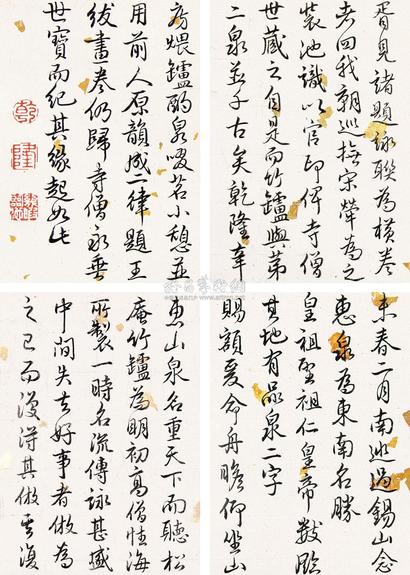 惠山泉名重天下而聽松
庵竹罏為明初高僧性海
所製一時名流傳詠甚盛
中間失去好事者倣為
之已而復得其倣復
胥見諸題詠聯為橫卷
者四我朝巡撫宋犖為之
裝池識以官印俾寺僧
世藏之自是而竹罏與第
二泉並千古矣乾隆辛
未春二月南巡過錫山念
惠泉為東南名勝
皇祖聖祖仁皇帝數臨
其地有品泉二字
賜額爰命舟瞻仰坐山
房煨罏酌泉啜茗小憩並
用前人原韻成二律題王
紱畫卷仍歸寺僧永垂
世寶而紀其緣起如此